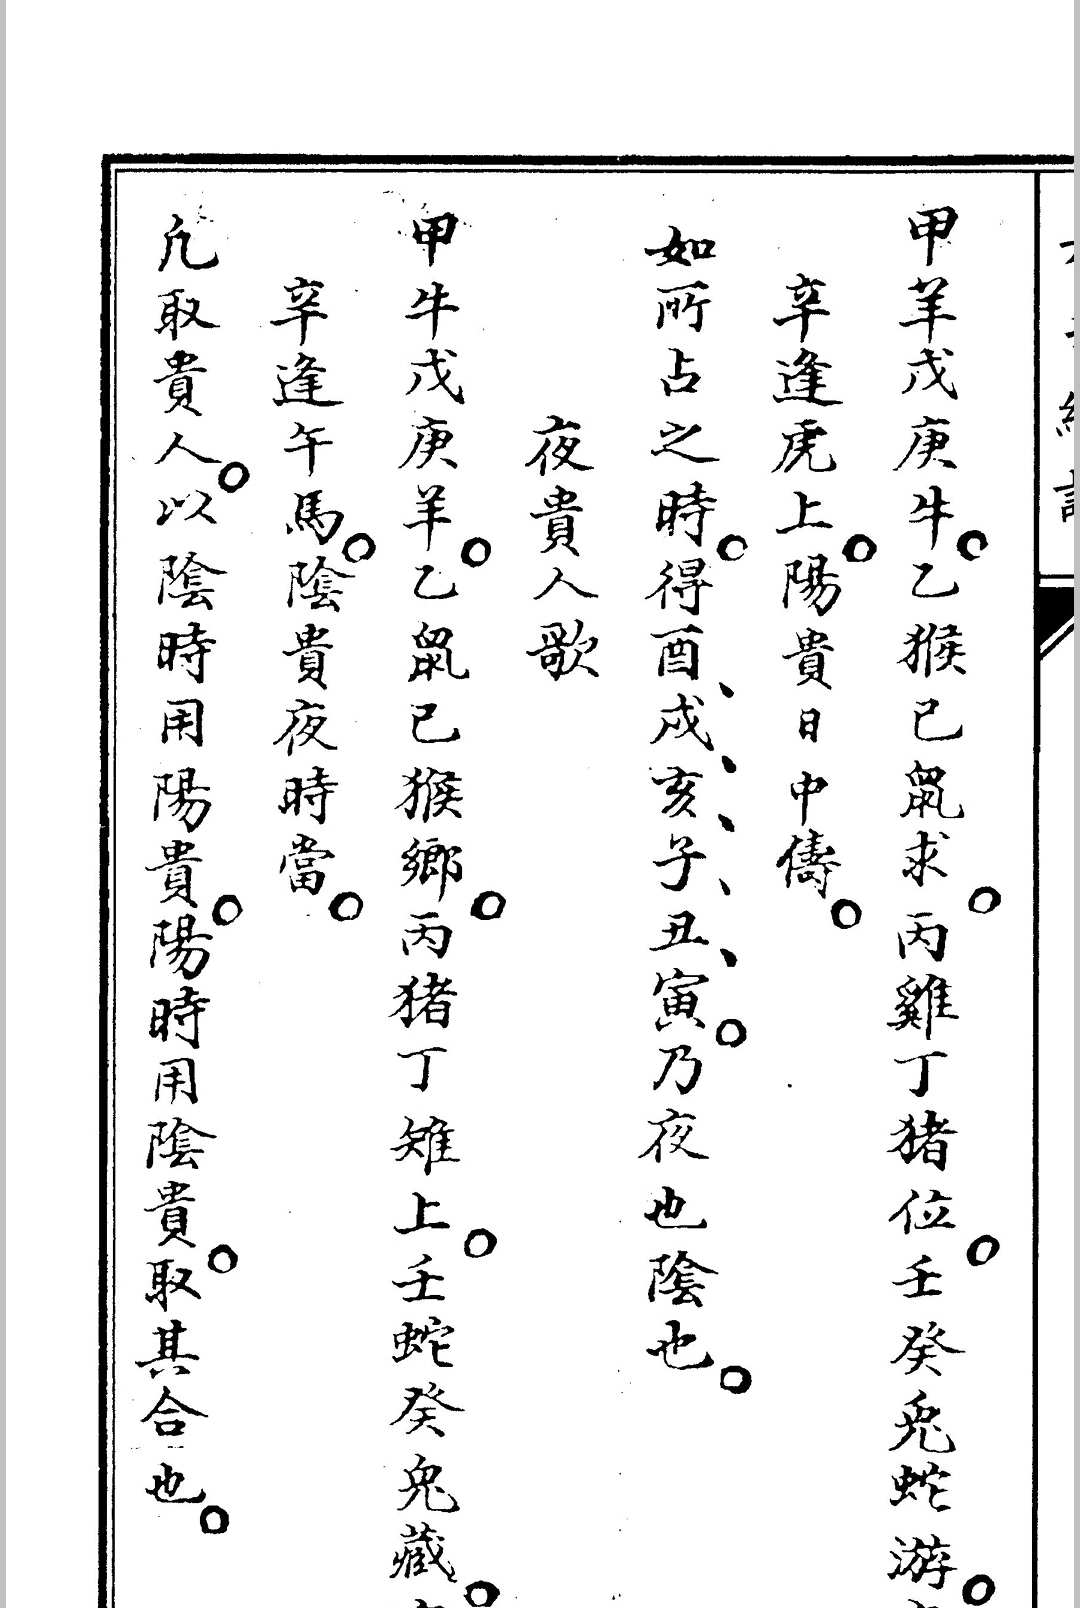 甲羊戊庚牛乙猴己鼠求丙雞丁猪位壬癸兎蛇游
辛逢虎上陽貴日中儔
如所占之時得酉戌亥子丑寅乃夜也陰也
夜貴人歌
甲牛戊庚羊乙鼠己猴鄉丙猪丁雉上壬蛇癸兎藏
辛逢午馬陰貴夜時當
凡取貴人以陰時用陽貴陽時用陰貴取其合也